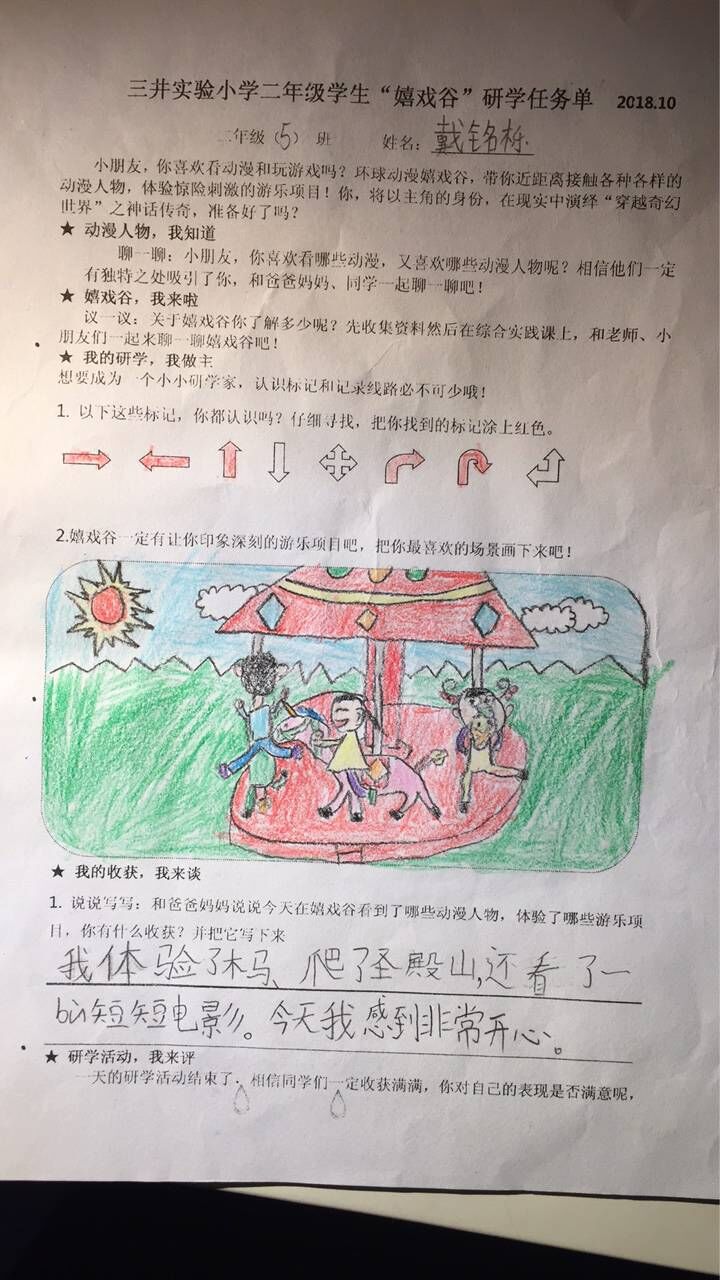 三井实验小学二年级学生“嬉戏谷”研学任务单 2018.10
二年级（5）班 姓名：戴铭栎
小朋友，你喜欢看动漫和玩游戏吗？环球动漫嬉戏谷，带你近距离接触各种各样的
动漫人物，体验惊险刺激的游乐项目！你，将以主角的身份，在现实中演绎“穿越奇幻
世界”之神话传奇，准备好了吗？
★ 动漫人物，我知道
聊一聊：小朋友，你喜欢看哪些动漫，又喜欢哪些动漫人物呢？相信他们一定
有独特之处吸引了你，和爸爸妈妈、同学一起聊一聊吧！
★ 嬉戏谷，我来啦
议一议：关于嬉戏谷你了解多少呢？先收集资料然后在综合实践课上，和老师、小
朋友们一起来聊一聊嬉戏谷吧！
★ 我的研学，我做主
想要成为一个小小研学家，认识标记和记录线路必不可少哦！
1. 以下这些标记，你都认识吗？仔细寻找，把你找到的标记涂上红色。
2.嬉戏谷一定有让你印象深刻的游乐项目吧，把你最喜欢的场景画下来吧！
★ 我的收获，我来谈
1. 说说写写：和爸爸妈妈说说今天在嬉戏谷看到了哪些动漫人物，体验了哪些游乐项
目，你有什么收获？并把它写下来
我体验了木马、爬了圣殿山，还看了一
bù短短电影。今天我感到非常开心。
★ 研学活动，我来评
一天的研学活动结束了，相信同学们一定收获满满，你对自己的表现是否满意呢，